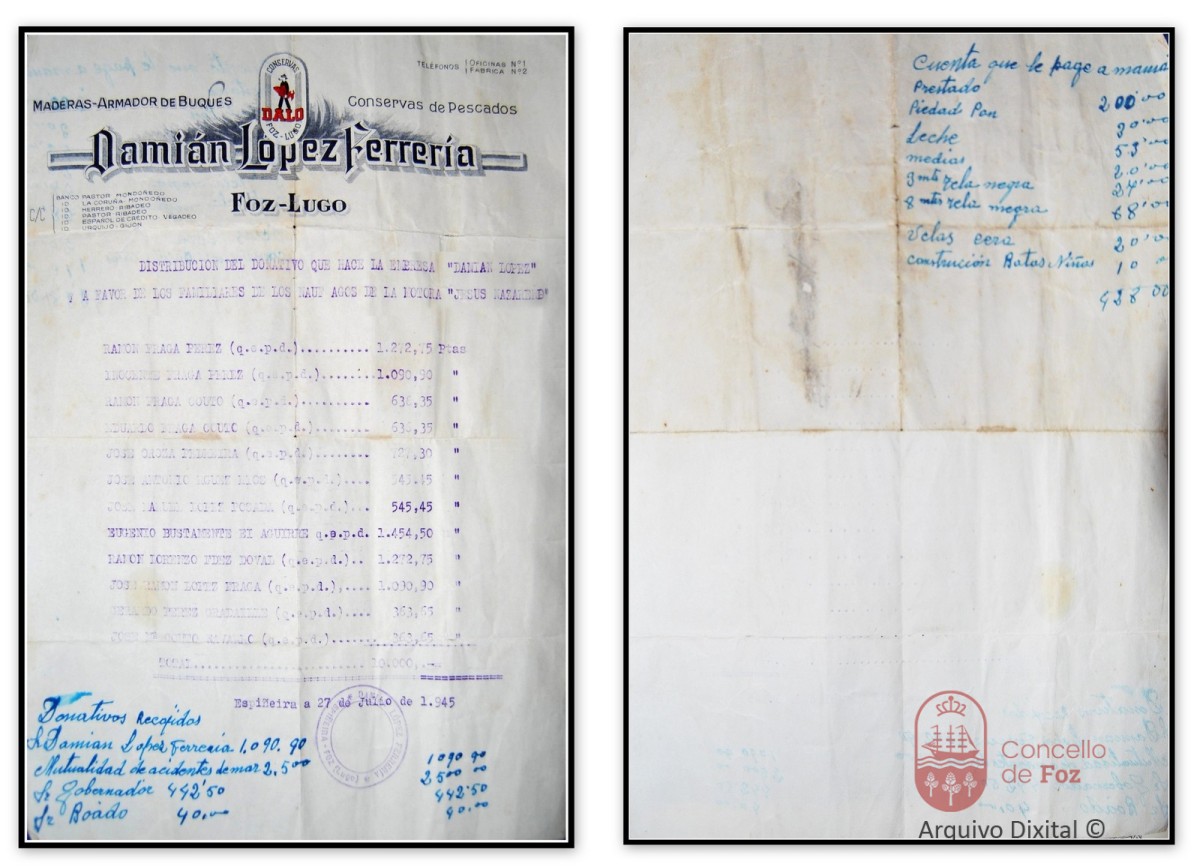 TELÉFONOS OFICINAS Nº1
FÁBRICA Nº2
CONSERVAS
DALO
FOZ-LUGO
MADERAS-ARMADOR DE BUQUES
Conservas de Pescados
Damián López Ferrería
Foz-Lugo
C/C
BANCO PASTOR MONDOÑEDO
ID LA CORUÑA MONDOÑEDO
ID HERRERO RIBADEO
ID PASTOR RIBADEO
ID ESPAÑOL DE CREDITO VEGADEO
ID URQUIJO-GIJON
DISTRIBUCION DEL DONATIVO QUE HACE LA EMPRESA "DAMIAN LOPEZ"
y A FAVOR DE LOS FAMILIARES DE LOS NAUF AGOS DE LA MOTORA "JESUS NAZARENO"
RAMON FRAGA PEREZ (q.e.p.d.).......... 1.272,75 Ptas
FRAGA PEREZ (q.e.p.d.)......1.090,90 "
RAMON FRAGA COUTO (q.e.p.d.).......... 636,35 "
EDUARDO FRAGA COUTO (q.e.p.d.)........ 636,35 "
JOSE (q.e.p.d.)....... 727,30 "
JOSE ANTONIO (q.e.p.d.).... 545,45 "
JOSE LOPEZ (q.e.p.d.)... 545,45 "
EUGENIO BUSTAMENTE EI AGUIRRE q.e.p.d. 1.454,50 "
RAMON LORENZO FDEZ DOVAL (q.e.p.d.).. 1.272,75 "
JOSE RAMON LOPEZ FRAGA (q.e.p.d.),.... 1.090,90 "
(q.e.p.d.).... 363,65 "
JOSE (q.e.p.d.)....... 363,65 "
TOTAL....................... 10.000,.-
Espiñeira a 27 de Julio de 1.945
Donativos Recojidos
Sr Damian Lopez Ferreria 1.090.90 1090 90
Mutualidad de acidentes de mar 2,500 2500 00
Sr Gobernador 442'50 442'50
Sr Boado 40,00 40.00
Cuenta que le page a mamá
Prestado 200'00
Piedad Pan 30'00
Leche 53'00
medias 20'00
3 mts Tela negra 27'00
8 mts Tela negra 68'00
Velas cera 20'00
construción Batas Niños 10 00
428 00
Concello
de Foz
Arquivo Dixital ©